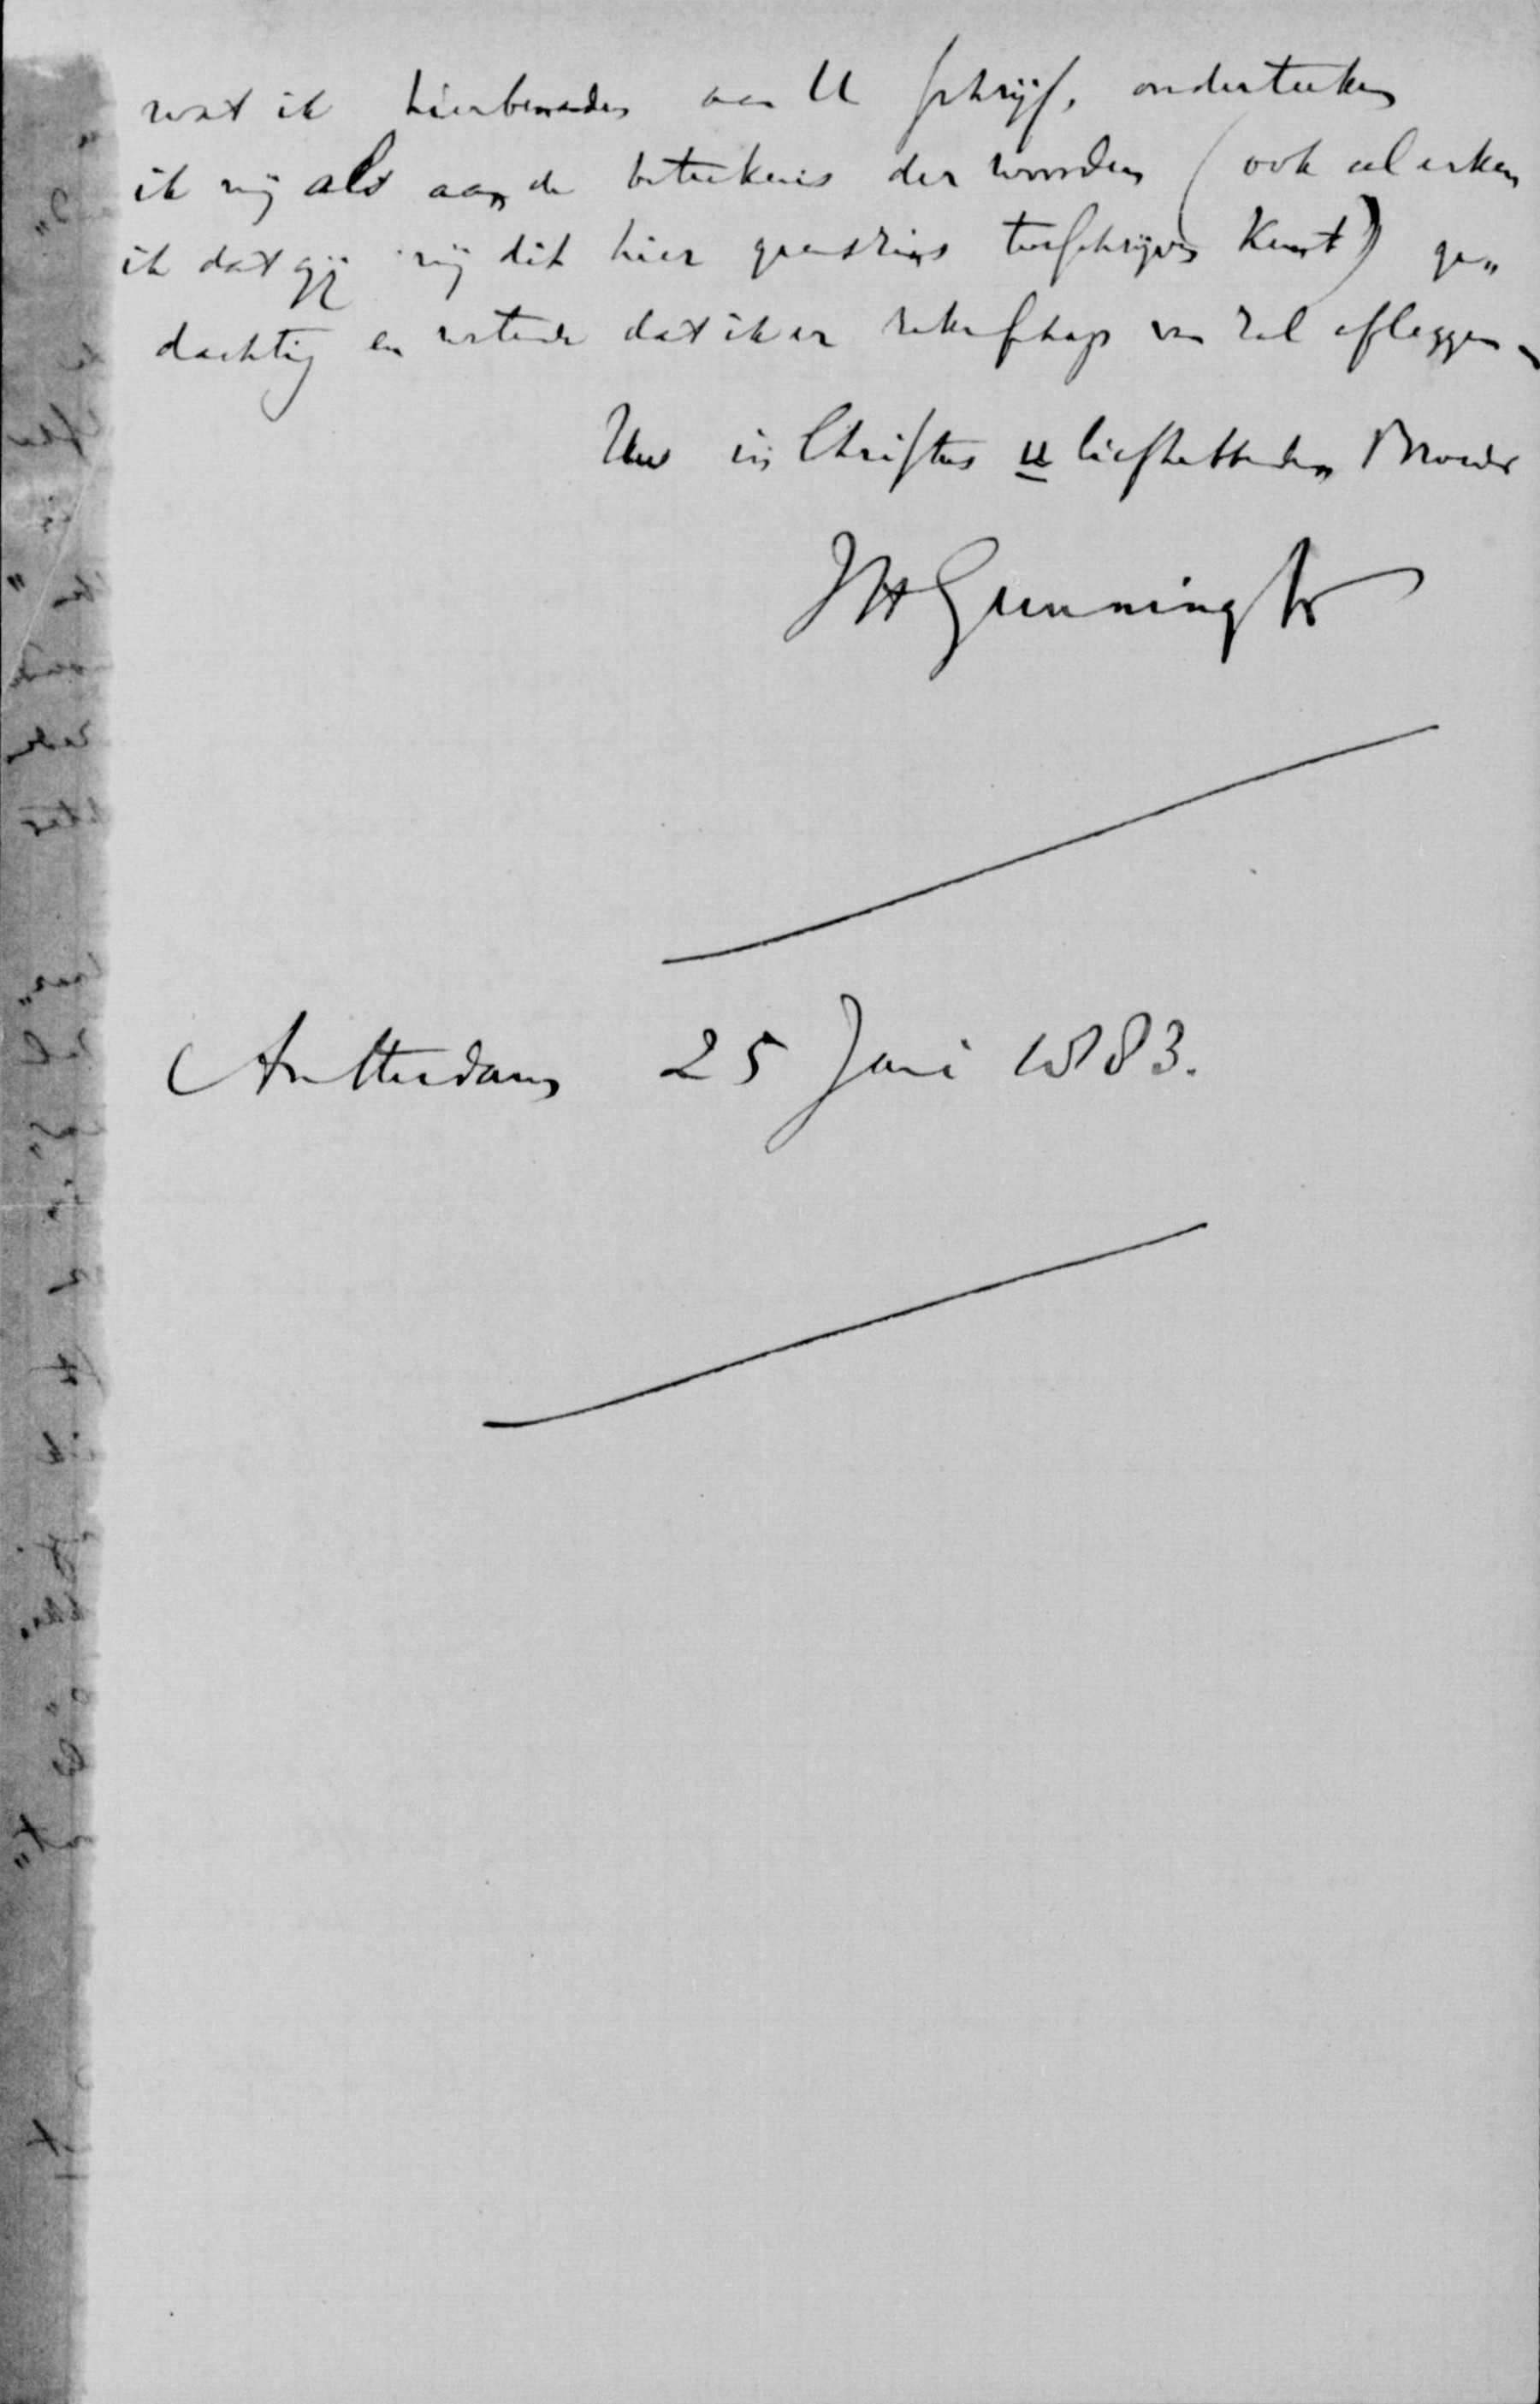 wat ik hierbeneden aan U schrijf, onderteeken
ik mij als aan de beteekenis der woorden (ook al erken
ik dat gij mij dit hier geenszins toeschrijven kunt) ge„
dachtig en wetende dat ik er rekenschap van zal afleggen
Uw in Christus u liefhebbenden Broeder
JHGunning Jr
Amsterdam 25 Juni 1883.